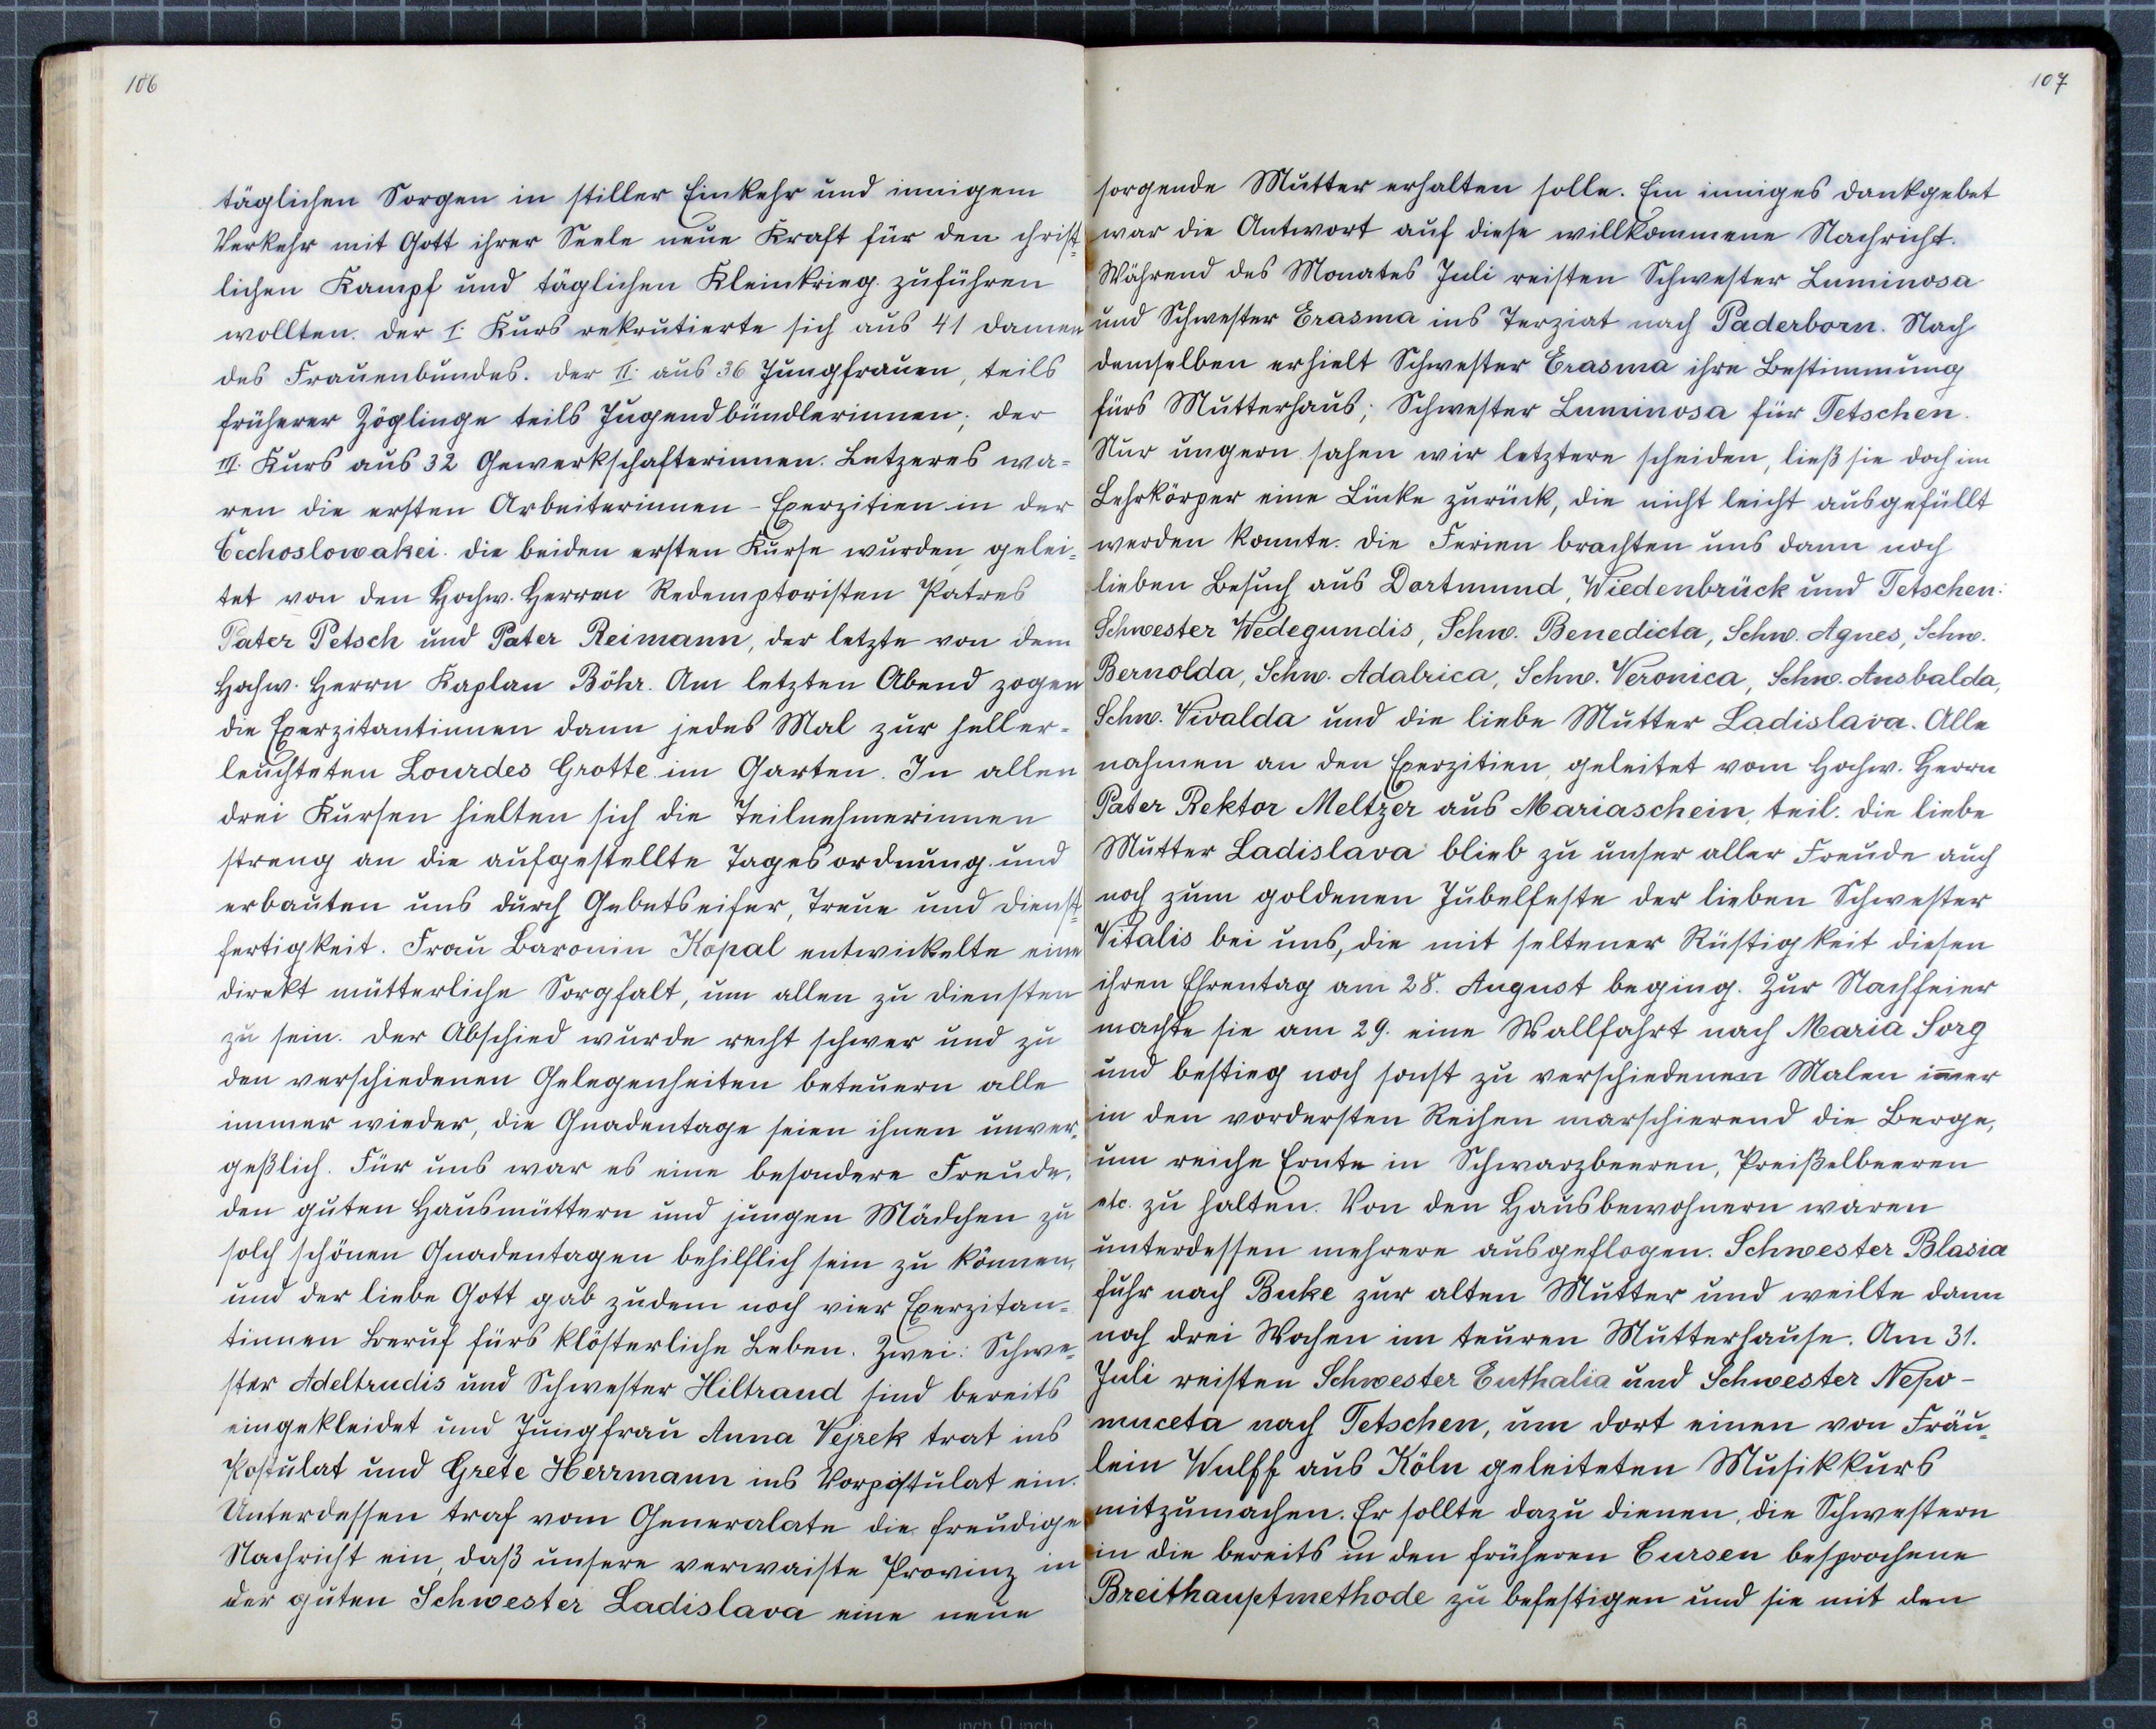 106
täglichen Sorgen in stiller Einkehr und innigem
Verkehr mit Gott ihrer Seele neue Kraft für den christ=
lichen Kampf und täglichen Kleinkrieg zuführen
wollten. Der I. Kurs rekrutierte sich aus 41 Damen
des Frauenbundes. Der II. aus 36 Jungfrauen, teils
früherer Zöglinge teils Jugendbündlerinnen; der
III. Kurs aus 32 Gewerkschafterinnen. Letzeres wa=
ren die ersten Arbeiterinnen-Exerzitien in der
Čechoslowakei. Die beiden ersten Kurse wurden gelei=
tet von den Hochw. Herren Redemptoristen Patres
Pater Petsch und Pater Reimann, der letzte von dem
Hochw. Herrn Kaplan Böhr. Am letzten Abend zogen
die Exerzitantinnen dann jedes Mal zur heller=
leuchteten Lourdes Grotte im Garten. In allen
drei Kursen hielten sich die Teilnehmerinnen
streng an die aufgestellte Tagesordnung und
erbauten uns durch Gebetseifer, Treue und Dienst=
fertigkeit. Frau Baronin Kopal entwickelte eine
direkt mütterliche Sorgfalt, um allen zu Diensten
zu sein. Der Abschied wurde recht schwer und zu
den verschiedenen Gelegenheiten beteuern alle
immer wieder, die Gnadentage seien ihnen unver=
geßlich. Für uns war es eine besondere Freude,
den guten Hausmüttern und jungen Mädchen zu
solch schönen Gnadentagen behilflich sein zu können,
und der liebe Gott gab zudem noch vier Exerzitan=
tinnen Beruf fürs klösterliche Leben. Zwei: Schwe=
ster Adeltrudis und Schwester Hiltraud sind bereits
eingekleidet und Jungfrau Anna Vejrek trat ins
Postulat und Grete Herrmann ins Vorpostulat ein.
Unterdessen traf vom Generalate die freudige
Nachricht ein, daß unsere verwaiste Provinz in
der guten Schwester Ladislava eine neue
107
sorgende Mutter erhalten solle. Ein inniges Dankgebet
war die Antwort auf diese willkommene Nachricht.
Während des Monates Juli reisten Schwester Luminosa
und Schwester Erasma ins Terziat nach Paderborn. Nach
demselben erhielt Schwester Erasma ihre Bestimmung
fürs Mutterhaus; Schwester Luminosa für Tetschen.
Nur ungern sahen wir letztere scheiden, ließ sie doch im
Lehrkörper eine Lücke zurück, die nicht leicht ausgefüllt
werden konnte. Die Ferien brachten uns dann noch
lieben Besuch aus Dortmund, Wiedenbrück und Tetschen:
Schwester Wedegundis, Schw. Benedicta, Schw. Agnes, Schw.
Bernolda, Schw. Adalrica, Schw. Veronica, Schw. Ansbalda,
Schw. Vivalda und die liebe Mutter Ladislava. Alle
nahmen an den Exerzitien, geleitet vom Hochw. Herrn
Pater Rektor Meltzer aus Mariaschein, teil. Die liebe
Mutter Ladislava blieb zu unser aller Freude auch
noch zum goldenen Jubelfeste der lieben Schwester
Vitalis bei uns, die mit seltener Rüstigkeit diesen
ihren Ehrentag am 28. August beging. Zur Nachfeier
machte sie am 29. eine Wallfahrt nach Maria Sorg
und bestieg noch sonst zu verschiedenen Malen im̅er
in den vordersten Reihen marschierend die Berge,
um reiche Ernte in Schwarzbeeren, Preißelbeeren
etc. zu halten. Von den Hausbewohnern waren
unterdessen mehrere ausgeflogen. Schwester Blasia
fuhr nach Buke zur alten Mutter und weilte dann
noch drei Wochen im teuren Mutterhause. Am 31.
Juli reisten Schwester Euthalia und Schwester Nepo-
muceta nach Tetschen, um dort einen von Fräu=
lein Wulff aus Köln geleiteten Musikkurs
mitzumachen. Er sollte dazu dienen, die Schwestern
in die bereits in den früheren Cursen besprochene
Breithauptmethode zu befestigen und sie mit den
8 7 6 5 4 3 2 1 inch 0 inch 1 2 3 4 5 6 7 8 9